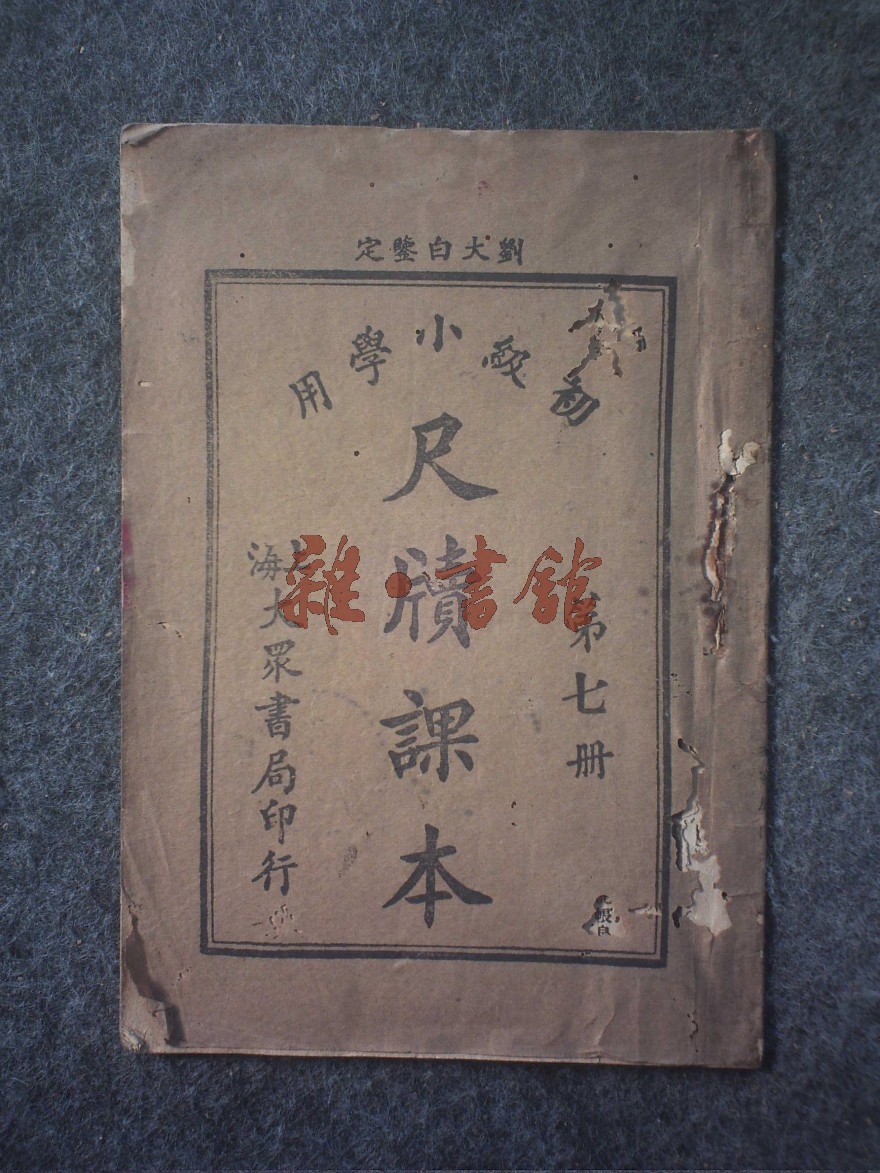 劉大白鑒定
小學用
第七册
尺牘課本
上海大眾書局印行
雜·書館